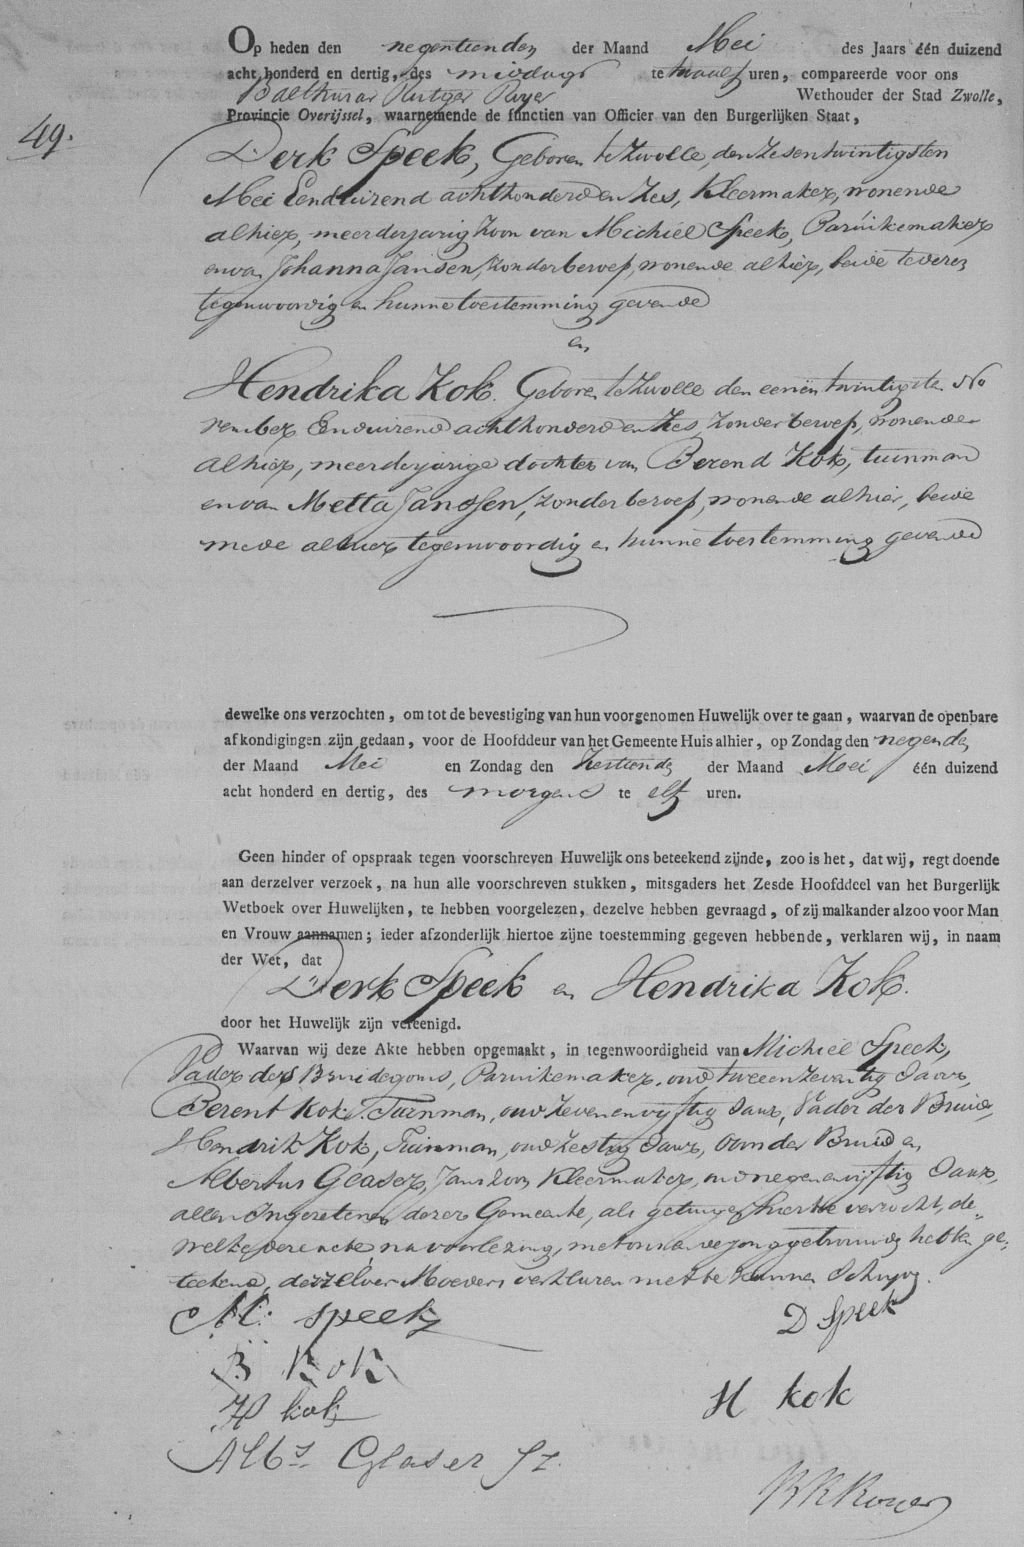 Op heden den negentienden der Maand Mei des Jaars één duizend
acht honderd en dertig, des middags te twaalf uren, compareerde voor ons
Balthasar Rutger Wethouder der Stad Zwolle,
Provincie Overijssel, waarnemende de functien van Officier van den Burgerlijken Staat,
49.
Derk Speek, Geboren te Zwolle, den Zesentwintigsten
Mei Eenduizend achthonderd en Zes, Kleermaker, wonende
alhier, meerderjarig Zoon van Michiel Speek, Paruikemaker
en van Johanna Jansen, zonder beroep, wonende alhier, beide
tegenwoordig en hunne toestemming gevende
en
Hendrika Kok. Geboren te Zwolle den eenentwintigsten No
vember Eenduizend achthonderd en Zes, Zonder beroep, wonende
alhier, meerderjarige dochter van Berend Kok, tuinman
en van Metta Janssen, zonder beroep, wonende alhier, beide
mede alhier tegenwoordig en hunne toestemming gevende
dewelke ons verzochten, om tot de bevestiging van hun voorgenomen Huwelijk over te gaan, waarvan de openbare
afkondigingen zijn gedaan, voor de Hoofddeur van het Gemeente Huis alhier, op Zondag den negenden
der Maand Mei en Zondag den Zestienden der Maand Mei één duizend
acht honderd en dertig, des morgens te elf uren.
Geen hinder of opspraak tegen voorschreven Huwelijk ons beteekend zijnde, zoo is het, dat wij, regt doende
aan derzelver verzoek, na hun alle voorschreven stukken, mitsgaders het Zesde Hoofddeel van het Burgerlijk
Wetboek over Huwelijken, te hebben voorgelezen, dezelve hebben gevraagd, of zij malkander alzoo voor Man
en Vrouw aannamen; ieder afzonderlijk hiertoe zijne toestemming gegeven hebbende, verklaren wij, in naam
der Wet, dat
Derk Speek en Hendrika Kok.
door het Huwelijk zijn vereenigd.
Waarvan wij deze Akte hebben opgemaakt, in tegenwoordigheid van Michiel Speek,
Vader des Bruidegoms, Paruikemaker, oud tweeenzeventig Jaar,
Berent Kok, Tuinman, oud zevenenvijftig Jaar, Vader der Bruid,
Hendrik Kok, Tuinman, oud Zestig Jaar, Oom der Bruid en
Albertus Glaser, Janszoon Kleermaker, oud negenenvijftig Jaar,
allen Ingezetenen dezer Gemeente, als getuigen hiertoe verzocht, de-
welke deze acte, na voorlezing, met ons en de jonggetrouwden hebben ge-
teekend, derzelver Moeders verklaren niet te kunnen Schrijven.
M: Speek
D Speek
B Kok
H kok
H kok
Alb.s Glaser Jz.